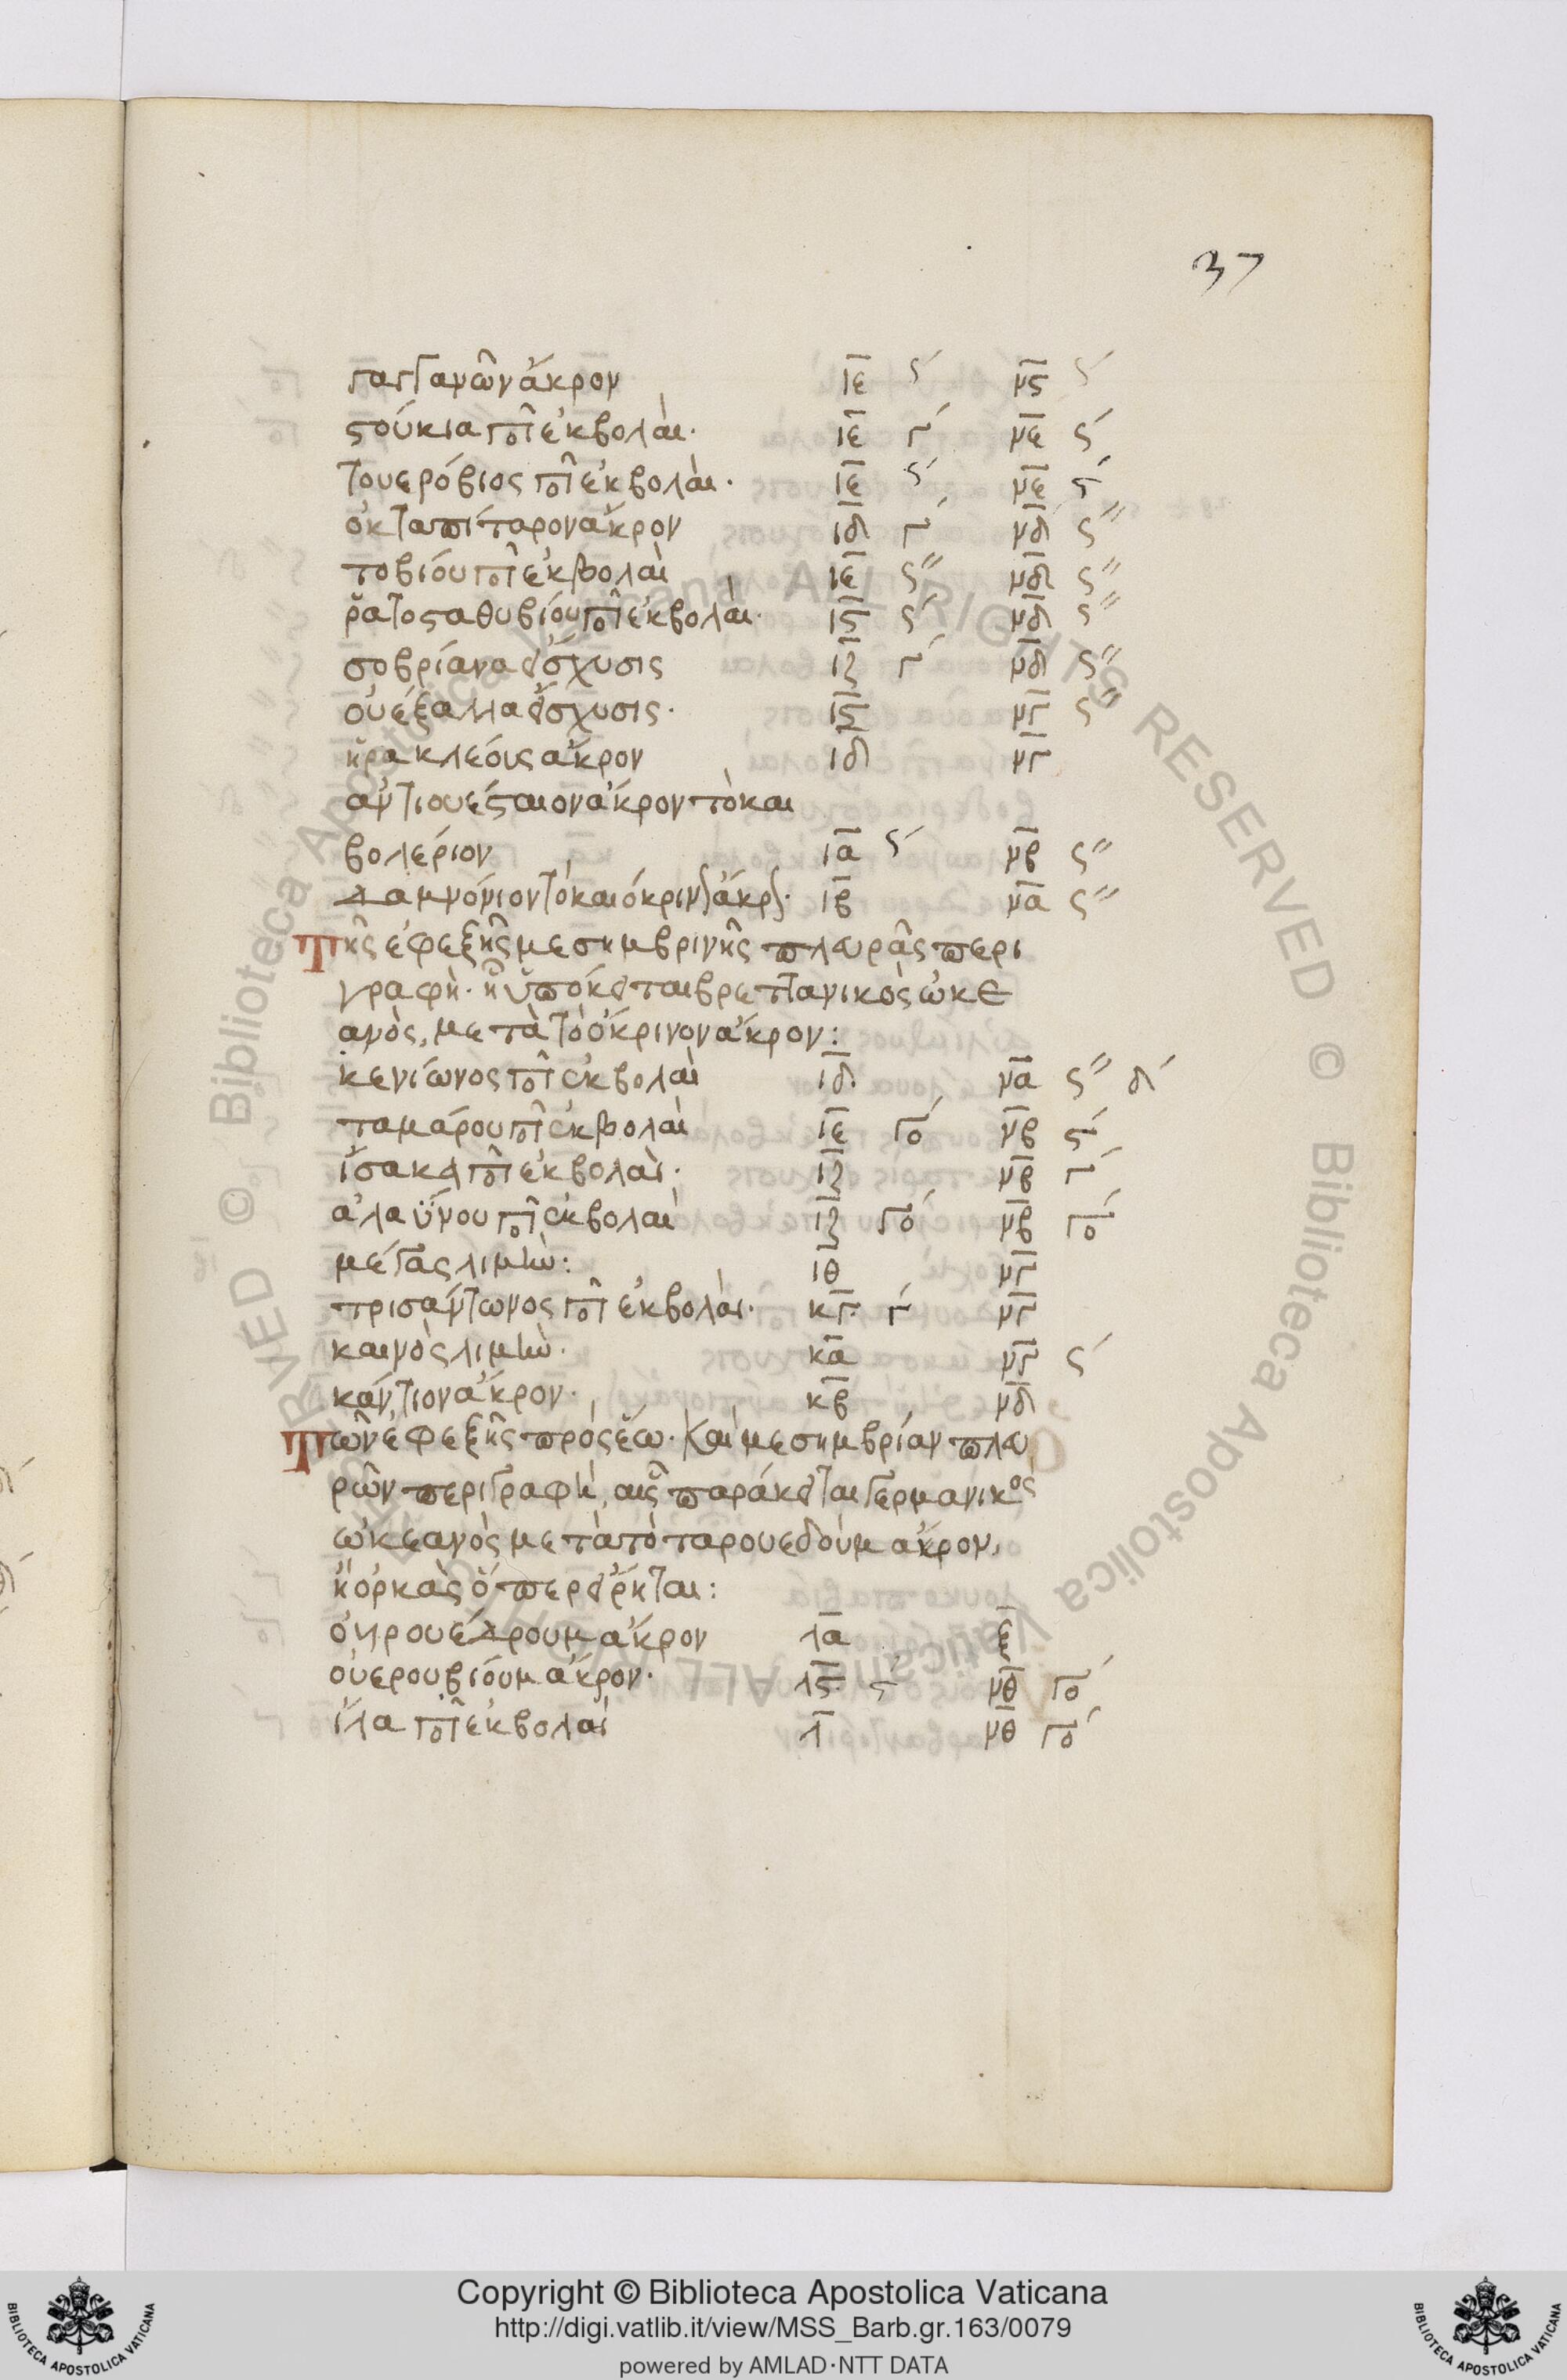 37
γαγγανῶν ἄκρον ιε ϛ´ νϛ ϛ´
στούκια ποτ ἐκβολαὶ· ιε γ´ νε ϛ´
τουερόβιος ποτ ἐκβολαὶ· ιε ϛ´ νε ϛ´
ὀκταπίταρον ἄκρον ιδ γ´ νδ ϛ´´
τοβίου ποτ ἐκβολαὶ ιε ϛ´´ νδ ϛ´´
ῥατοσταθυβίου ποτ ἐκβολαὶ· ιϛ ϛ´ νδ ϛ´´
σαβρίανα εἴσχυσις ιζ γ´ νδ ϛ´´
οὐέξαλλα εἴσχυσις· ιϛ νγ ϛ´´
ἡρακλέους ἄκρον ιδ νγ
ἀντιουέσταιον ἄκρον τὸ και
βολέριον ια ϛ´ νβ ϛ´´
δαμνόνιον τὸ και ὄκριν ἄκρ· ιβ να ϛ´´
Τῆς ἐφεξῆς μεσημβρινῆς πλευρᾶς περι
γραφὴ· ᾗ ὑπόκειται βρεττανικὸς ὠκε
ανὸς, μετὰ τὸ ὄκρινον ἄκρον:
κενίωνος ποτ ἐκβολαὶ ιδ να ϛ´´ δ´
ταμάρου ποτ ἐκβολαὶ ιε γο´ νβ ϛ´
ἴσακα ποτ ἐκβολαὶ· ιζ νβ γ´
ἀλαύνου ποτ ἐκβολαὶ ιζ γο´ νβ γο´
μέγας λιμὴν: ιθ νγ
τρισάντωνος ποτ ἐκβολαὶ· κγ γ´ νγ
καινὸς λιμὴν· κα νγ ϛ´
κάντιον ἄκρον· κβ νδ
Τῶν ἐφεξῆς πρὸς ἕω· και μεσημβρίαν πλευ
ρῶν περιγραφὴ, αἷς παράκειται γερμανικὸς
ὠκεανὸς μετὰ τὸ ταρουεδοὺμ ἄκρον,
ἢ ὀρκὰς ὅπερ εἴρηται:
ὀηρουέδρουμ ἄκρον λα ξ
οὐερουβιούμ ἄκρον· λϛ ϛ´ νθ γο´
ἴλα ποτ ἐκβολαὶ λ νθ γο´
Copyright © Biblioteca Apostolica Vaticana
http://digi.vatlib.it/view/MSS_Barb.gr.163/0079
powered by AMLAD·NTT DATA